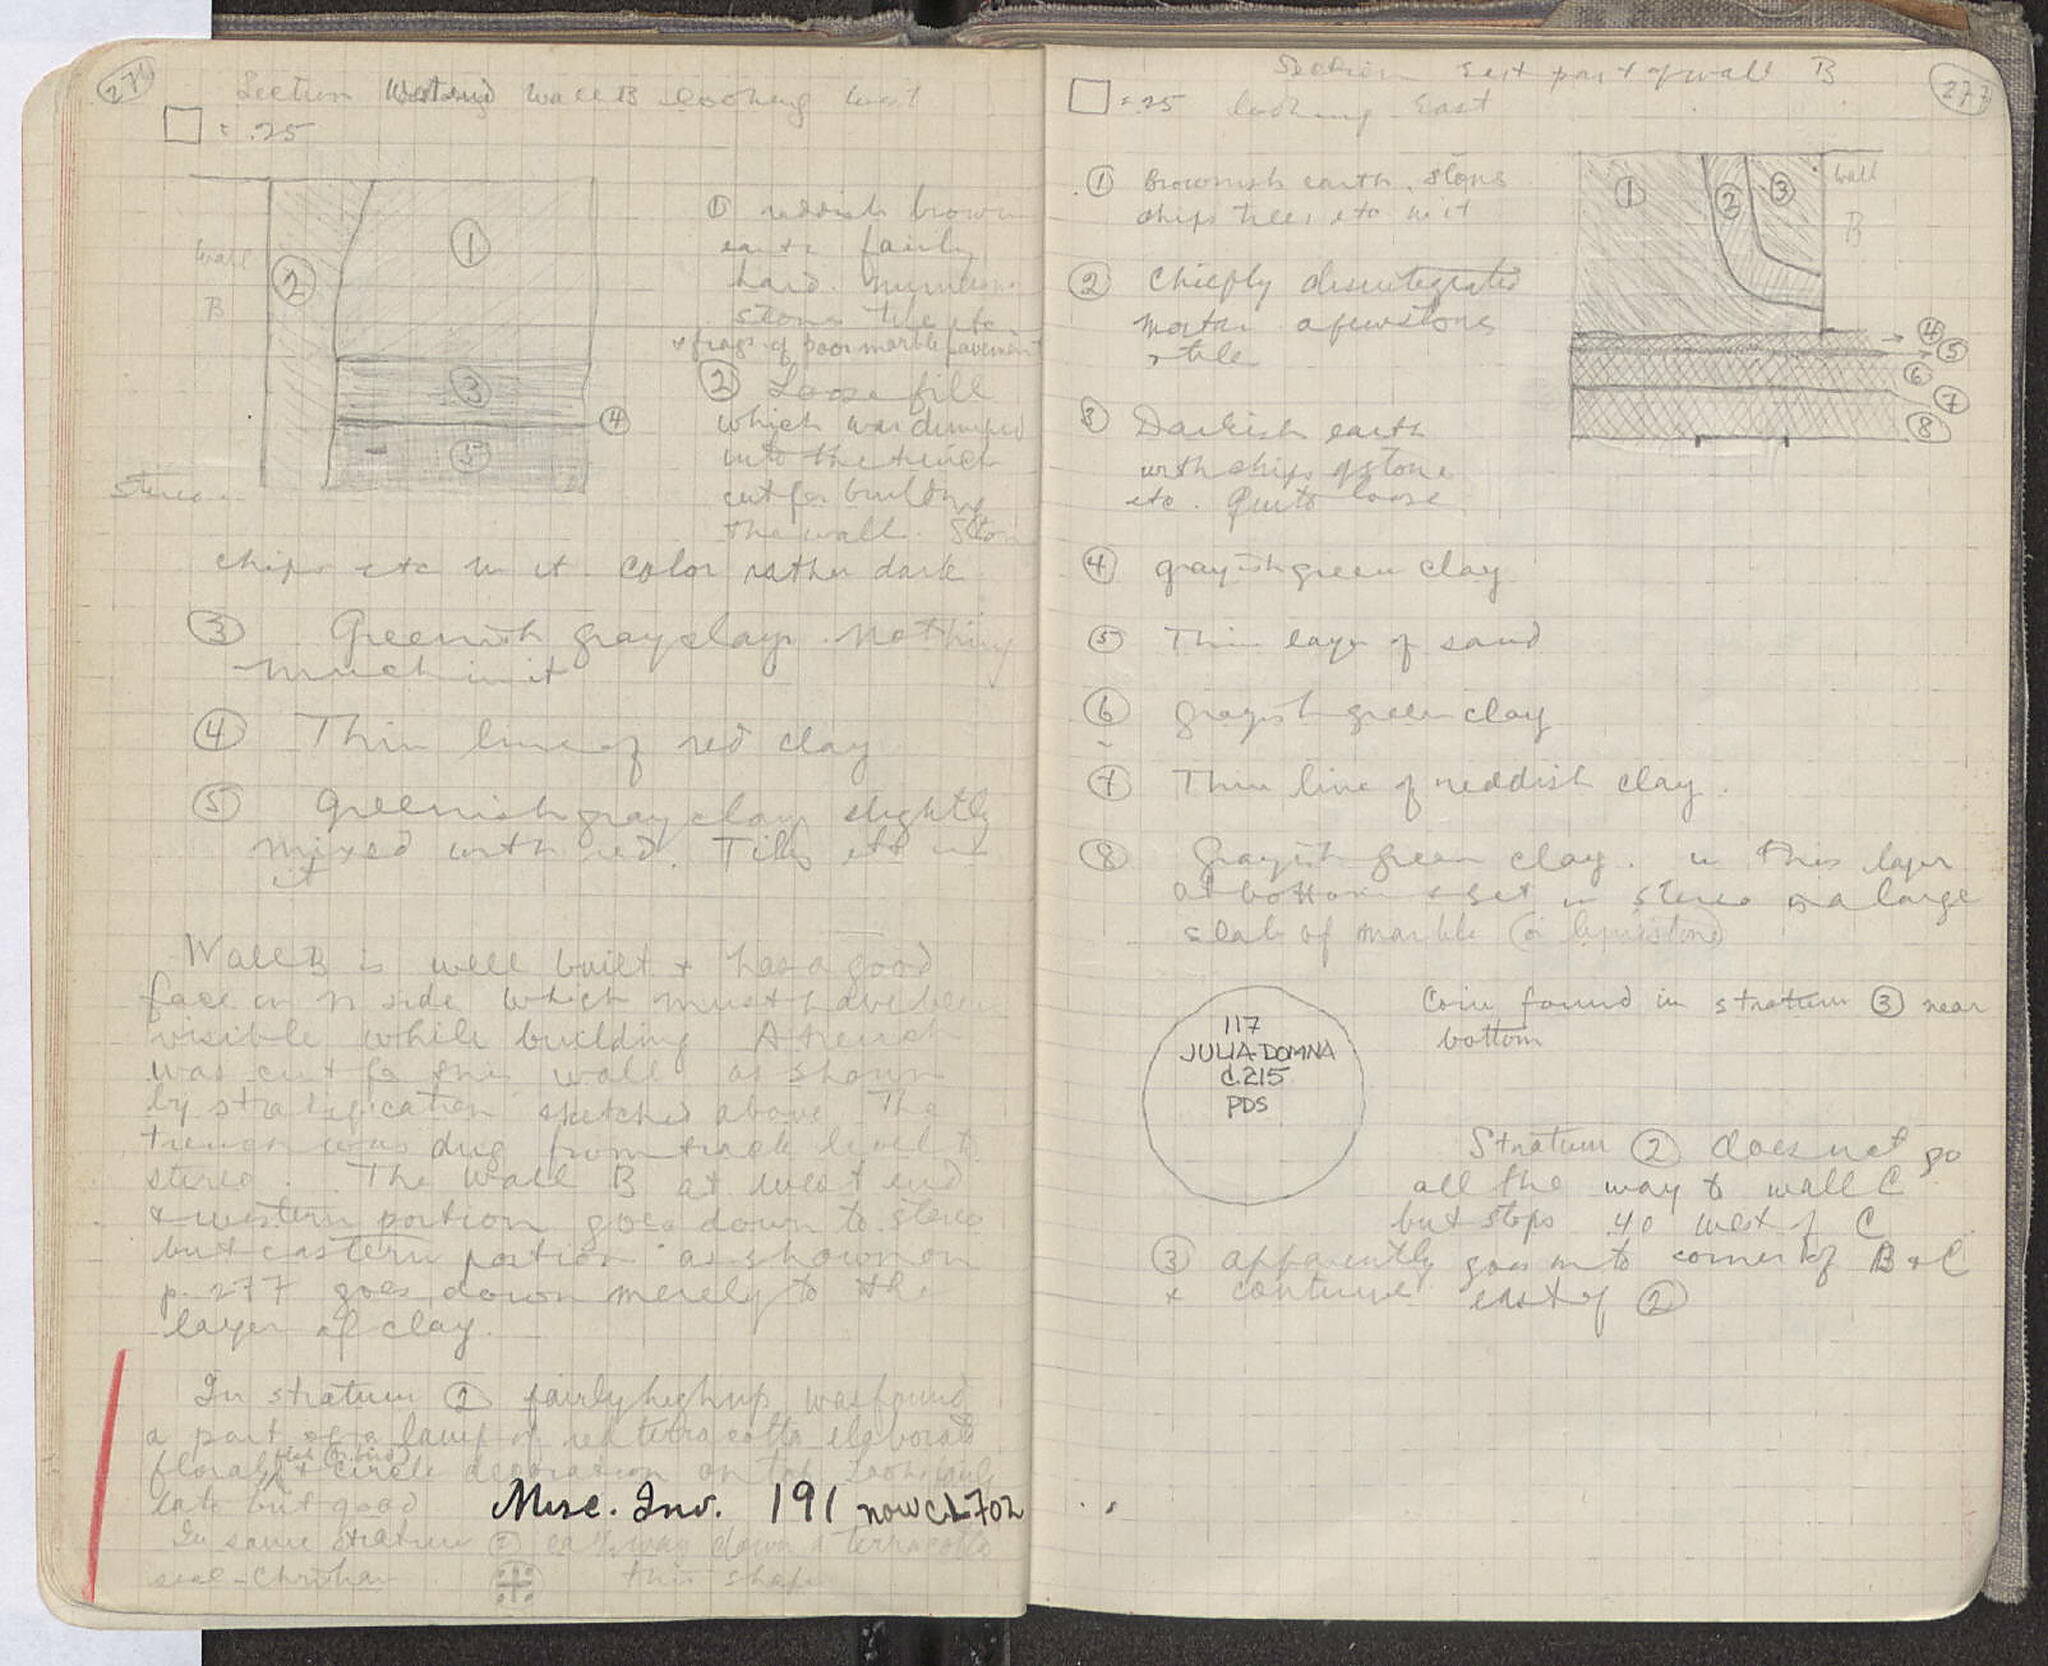 276
Section West end Wall B looking West
= .25
Wall
B
1
2
3
4
5
Stereo
① reddish brown
earth fairly
hard. numerous
stones tile etc.
+ frags of poor marble pavement
② Loose fill
which was dumped
into the trench
cut for building
the wall. Stone
chips etc in it. Color rather dark
③ Greenish gray clay. Nothing
much in it
④ Thin line of red clay
⑤ Greenish gray clay slightly
mixed with red. Tiles etc in
it
Wall B is well built + has a good
face on N side which must have been
visible while building A trench
was cut for this wall as shown
by stratification sketches above. The
trench was dug from track level to
stereo. The Wall B at west end
+ western portion goes down to stereo
but eastern portion as shown on
p. 277 goes down merely to the
layer of clay.
In stratum ② fairly high up was found
a part of a lamp of red terra cotta elaborate
floral + circle decoration on top. Looks fairly
late but good Misc. Inv. 191 now CL 702
In same stratum ② way down a terracotta
seal - Christian this shape
277
Section East part of wall B
= .25 looking East
① Brownish earth, stone
chips tiles etc in it
② Chiefly disintegrated
mortar a few stones
+ tile
③ Darkish earth
with chips of stone
etc. Quite loose
1
2
3
Wall
B
4
5
6
7
8
④ grayish green clay
⑤ Thin layer of sand
⑥ grayish green clay
⑦ Thin line of reddish clay.
⑧ Grayish green clay. in this layer
at bottom + set in stereo is a large
slab of marble (or limestone)
117
JULIA DOMNA
C. 215
PDS
Coin found in stratum ③ near
bottom
Stratum ② does not go
all the way to wall C
but stops .40 west of C
③ apparently goes into corner of B + C
+ continues east of ②